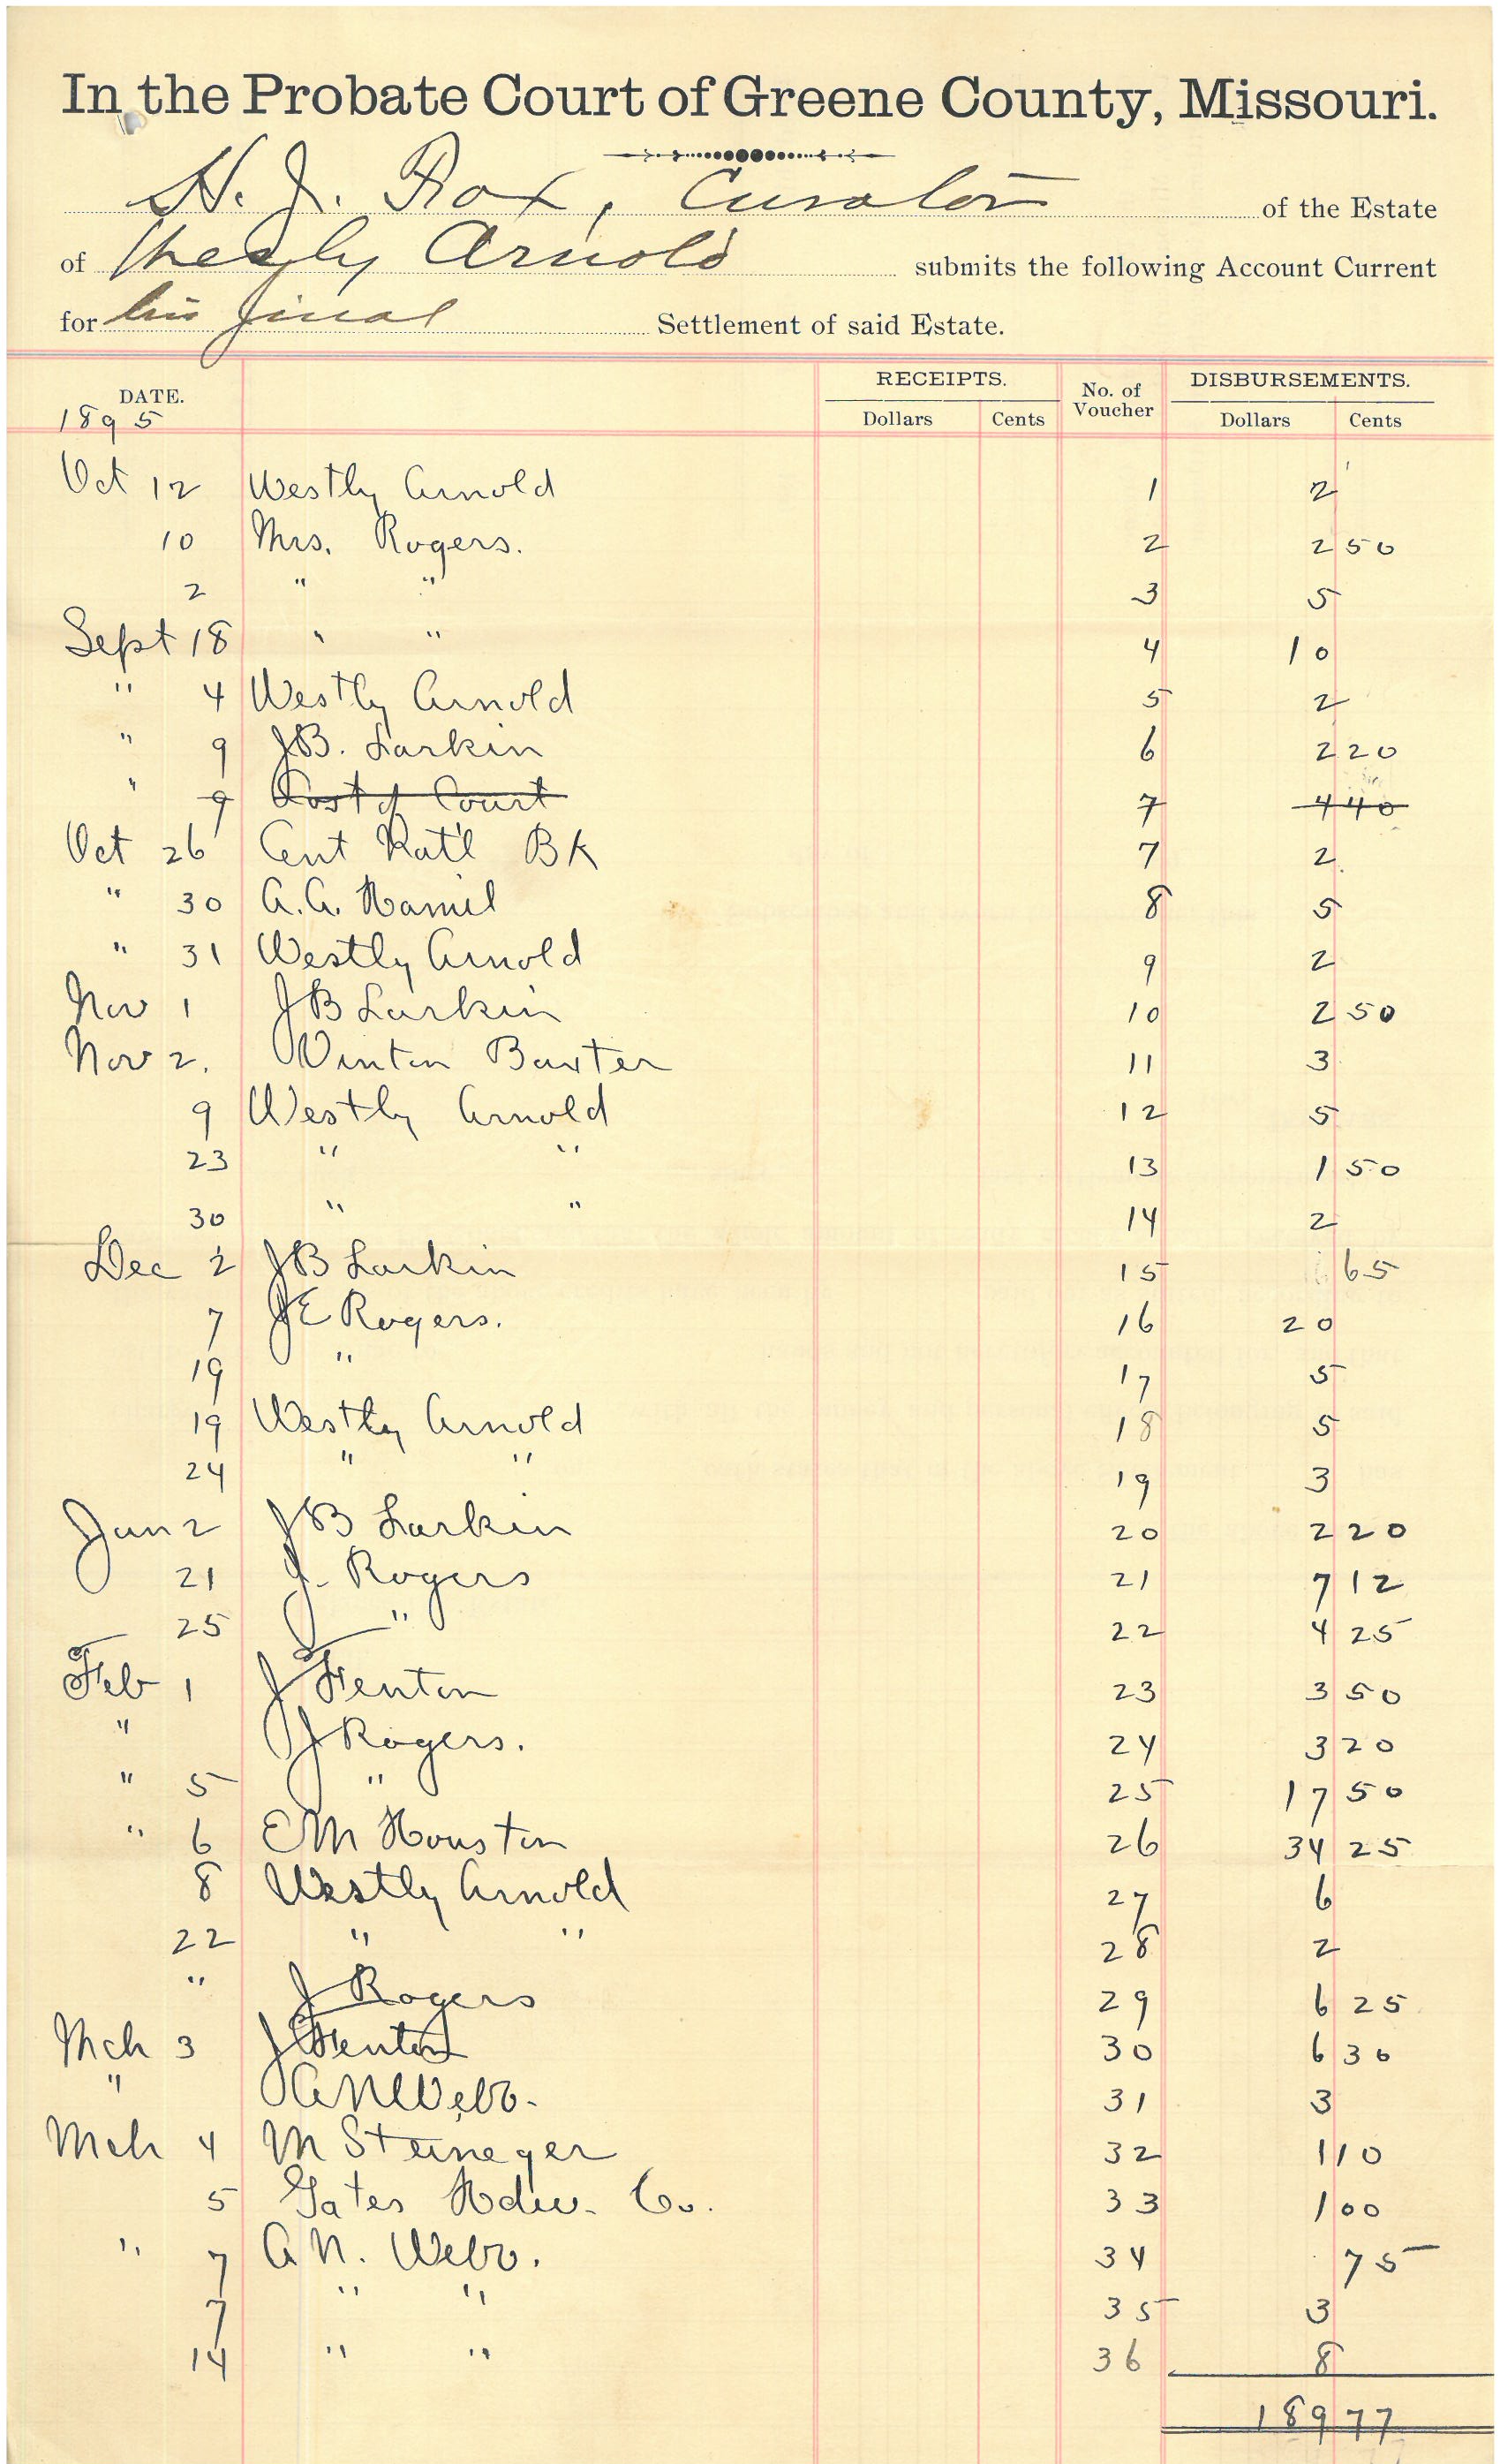 In the Probate Court of Greene County, Missouri.
H. J. Rox, Curator of the Estate
of Westly Arnold submits the following Account Current
for his final Settlement of said Estate.
DATE. RECEIPTS. No. of Voucher DISBURSEMENTS.
1895 Dollars Cents Dollars Cents
Oct 12 Westly Arnold 1 2
10 Mrs. Rogers. 2 2 50
2 " " 3 5
Sept 18 " " 4 10
" 4 Westly Arnold 5 2
" 9 JB. Larkin 6 2 20
" 9 Cost of Court 7 4 40
Oct 26 Cent Nat'l Bk 7 2
" 30 A.A. Hamil 8 5
" 31 Westly Arnold 9 2
Nov 1 JB Larkin 10 2 50
Nov 2. Vinton Baxter 11 3
9 Westly Arnold 12 5
23 " " 13 1 50
30 " " 14 2
Dec 2 JB Larkin 15 65
7 JE Rogers. 16 20
19 " 17 5
19 Westly Arnold 18 5
24 " " 19 3
Jan 2 JB Larkin 20 2 20
21 J. Rogers 21 7 12
25 " 22 4 25
Feb 1 J Fenton 23 3 50
" J Rogers. 24 3 20
" 5 " 25 17 50
" 6 EM Houston 26 34 25
8 Westly Arnold 27 6
22 " " 28 2
" J Rogers 29 6 25
Mch 3 J Fenton 30 6 30
" AN Webb. 31 3
Mch 4 M Steineger 32 1 10
5 Yates Hdw. Co. 33 1 00
" 7 A N. Webb. 34 75
7 " " 35 3
14 " " 36 8
189 77